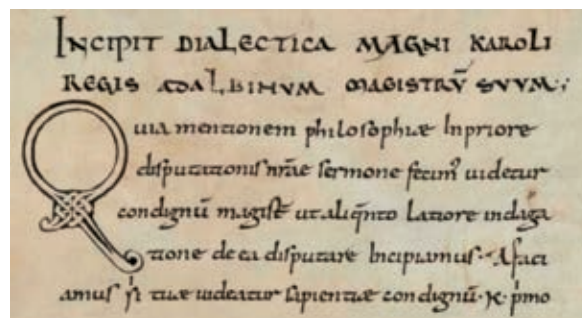 INCIPIT DIALECTICA MAGNI KAROLI
REGIS AD ALBINUM MAGISTRŪ SVVM:
Quia mentionem philosophiæ Inpriore
disputationis nr̄ae sermone fecim' uidetur
condignū magist̄ ut aliq̄nto latiore indaga
tione de ea disputare Incipiamus. Λ faci
amus si tuæ uideatur sapientiæ condignū. K pmo